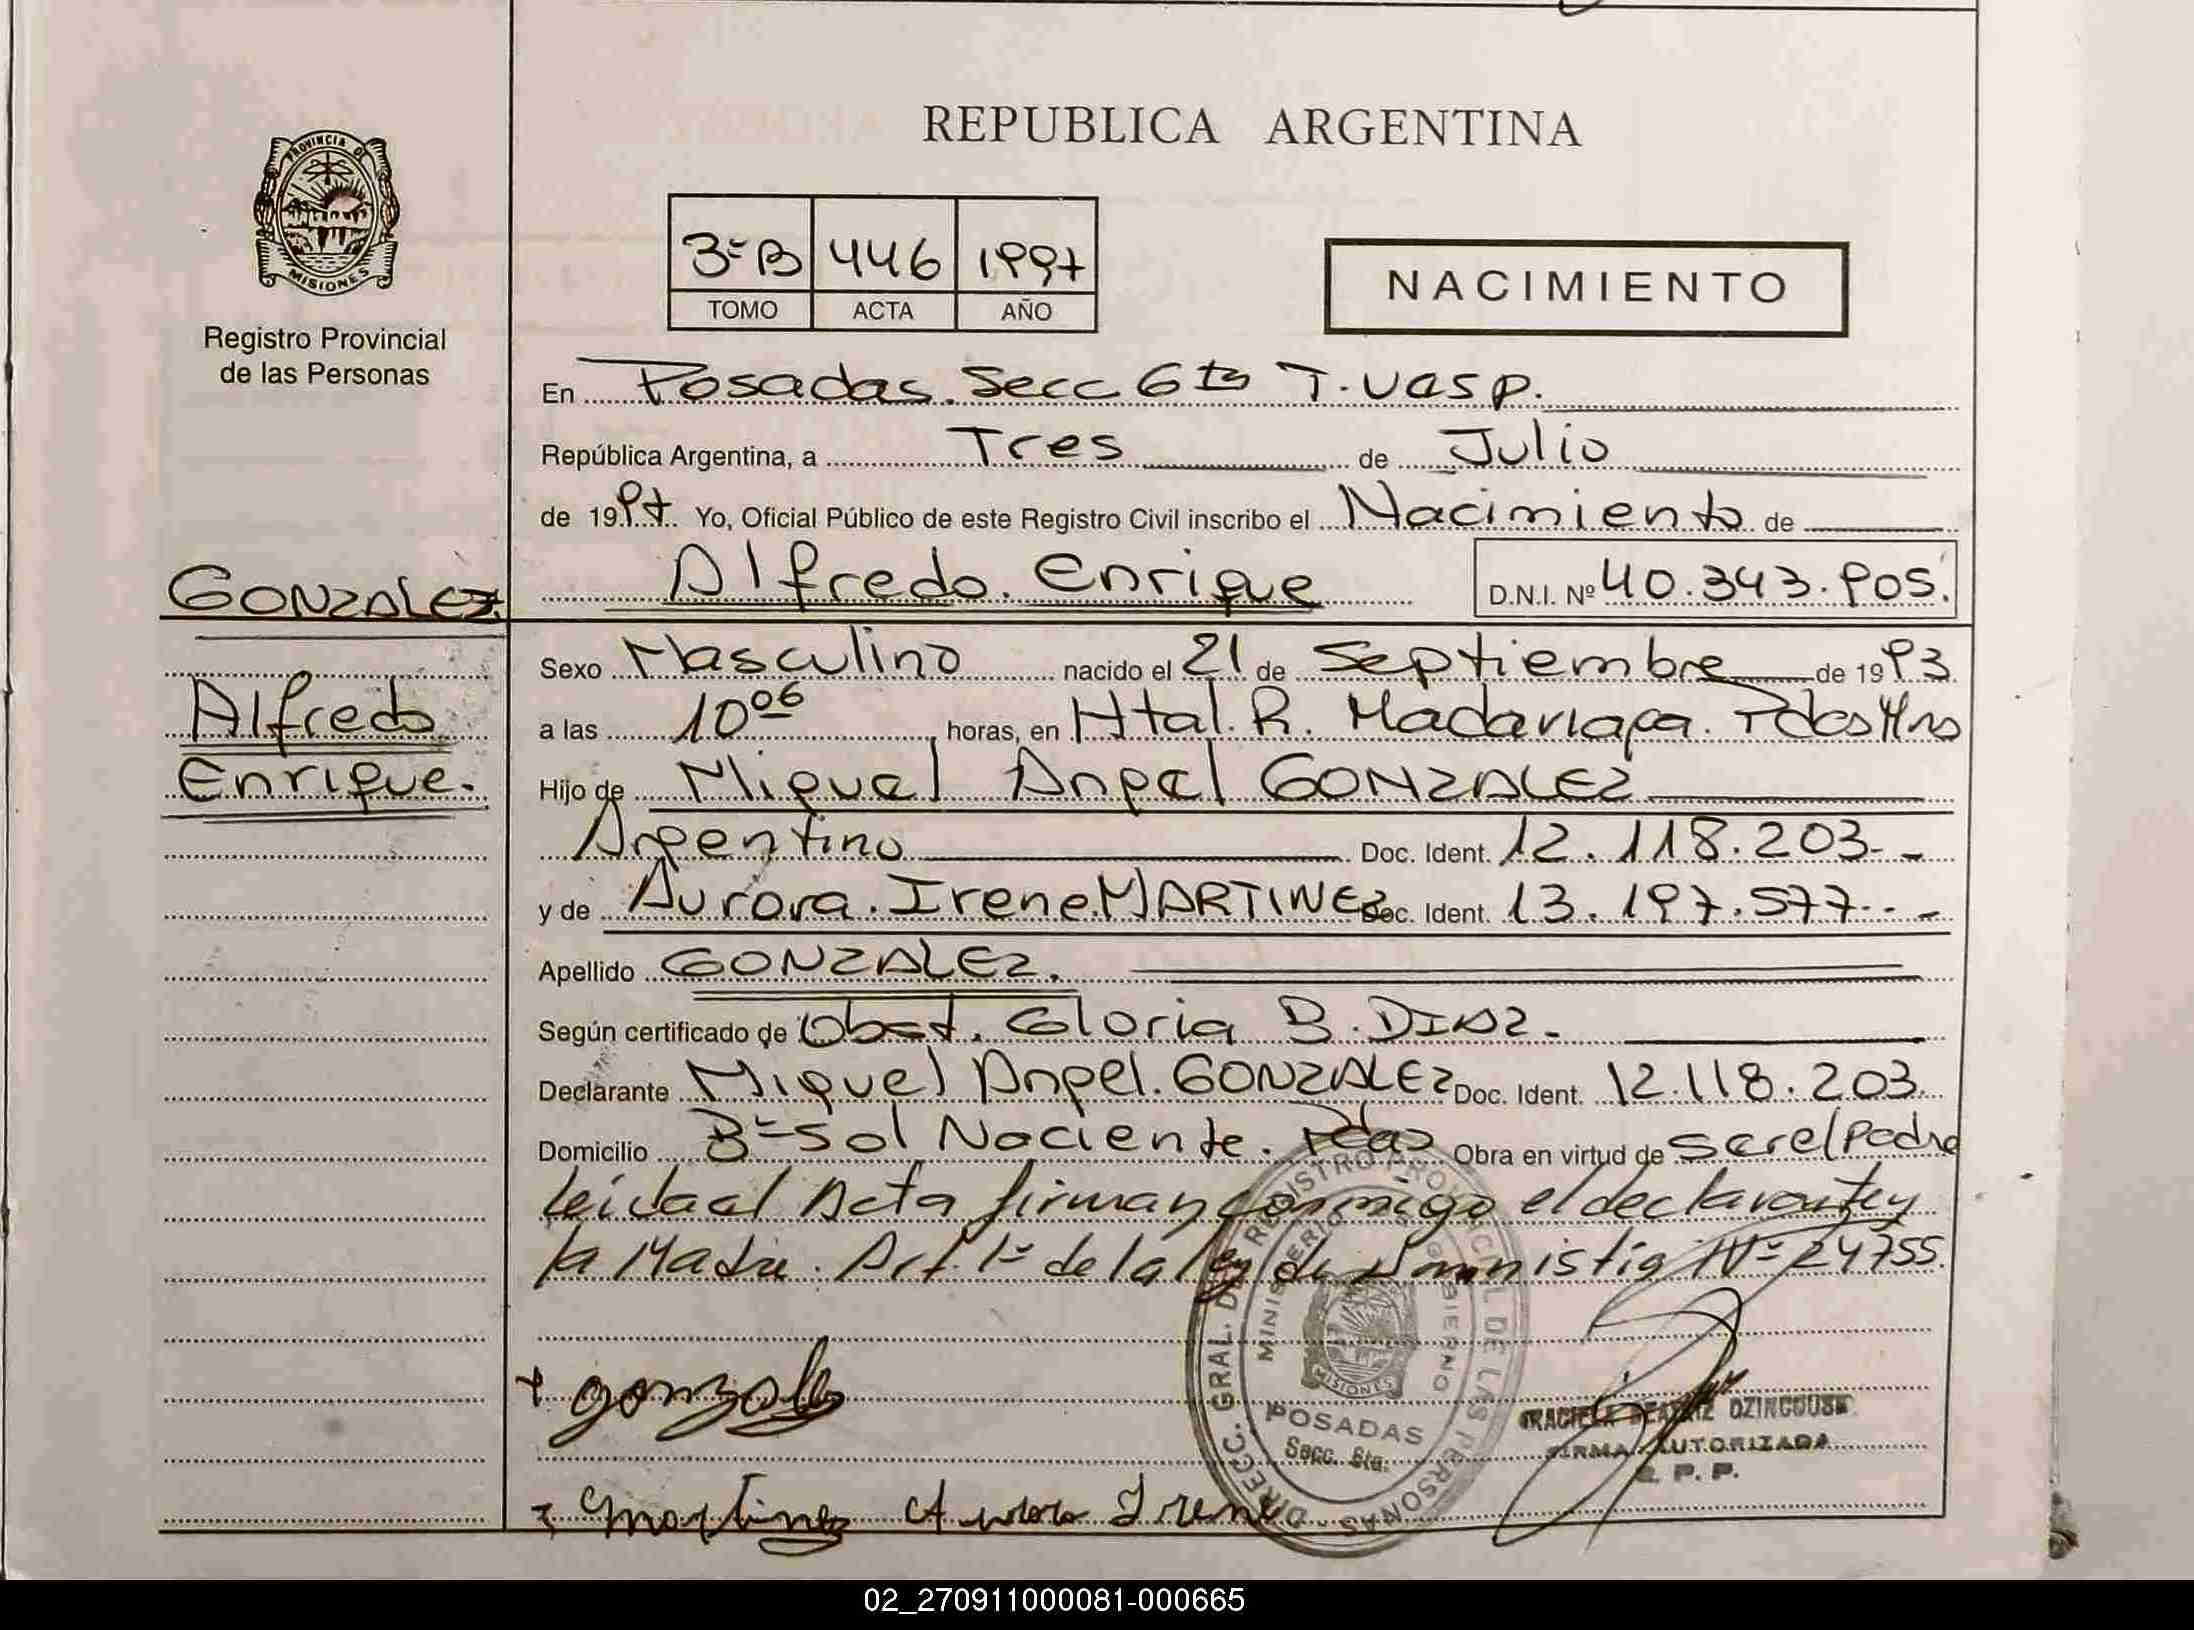 PROVINCIA DE
MISIONES
Registro Provincial
de las Personas
GONZALEZ
Alfredo
Enrique.
REPUBLICA ARGENTINA
3ºB 446 1997
TOMO ACTA AÑO
NACIMIENTO
En Posadas. Secc 6ta T. vesp.
República Argentina, a Tres de Julio
de 1997. Yo, Oficial Público de este Registro Civil inscribo el Nacimiento de
Alfredo. Enrique D.N.I. Nº 40.343.905.
Sexo Masculino nacido el 21 de Septiembre de 1993
a las 10 06 horas, en Htal. R. Madariaga. Pdas Mns
Hijo de Miguel Angel GONZALEZ
Argentino Doc. Ident. 12.118.203.-
y de Aurora. Irene. MARTINEZ Doc. Ident. 13.197.577.--
Apellido GONZALEZ.
Según certificado de Obst. Gloria B. DIAZ.
Declarante Miguel Angel. GONZALEZ Doc. Ident. 12.118.203.
Domicilio Bº Sol Naciente. Pdas Obra en virtud de ser el Padre
Leída el Acta firman conmigo el declarante y
la Madre. Art. 1º de la ley de Amnistia Nº 24755.
gonzalez
Martinez Aurora Irene
DIRECC. GRAL. DE REGISTRO PROVINCIAL DE LAS PERSONAS
MINISTERIO GOBIERNO
MISIONES
POSADAS
Secc. 6ta.
GRACIELA BEATRIZ
FIRMA AUTORIZADA
R. P. P.
02_270911000081-000665